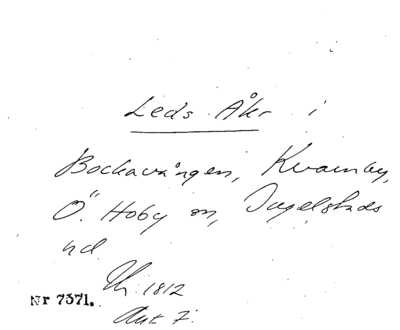 Leds Åkr i
Bockavången, Kvarnby,
Ö. Hoby sn, Ingelstads
hd
1812
Nr 7371.
Akt 7.